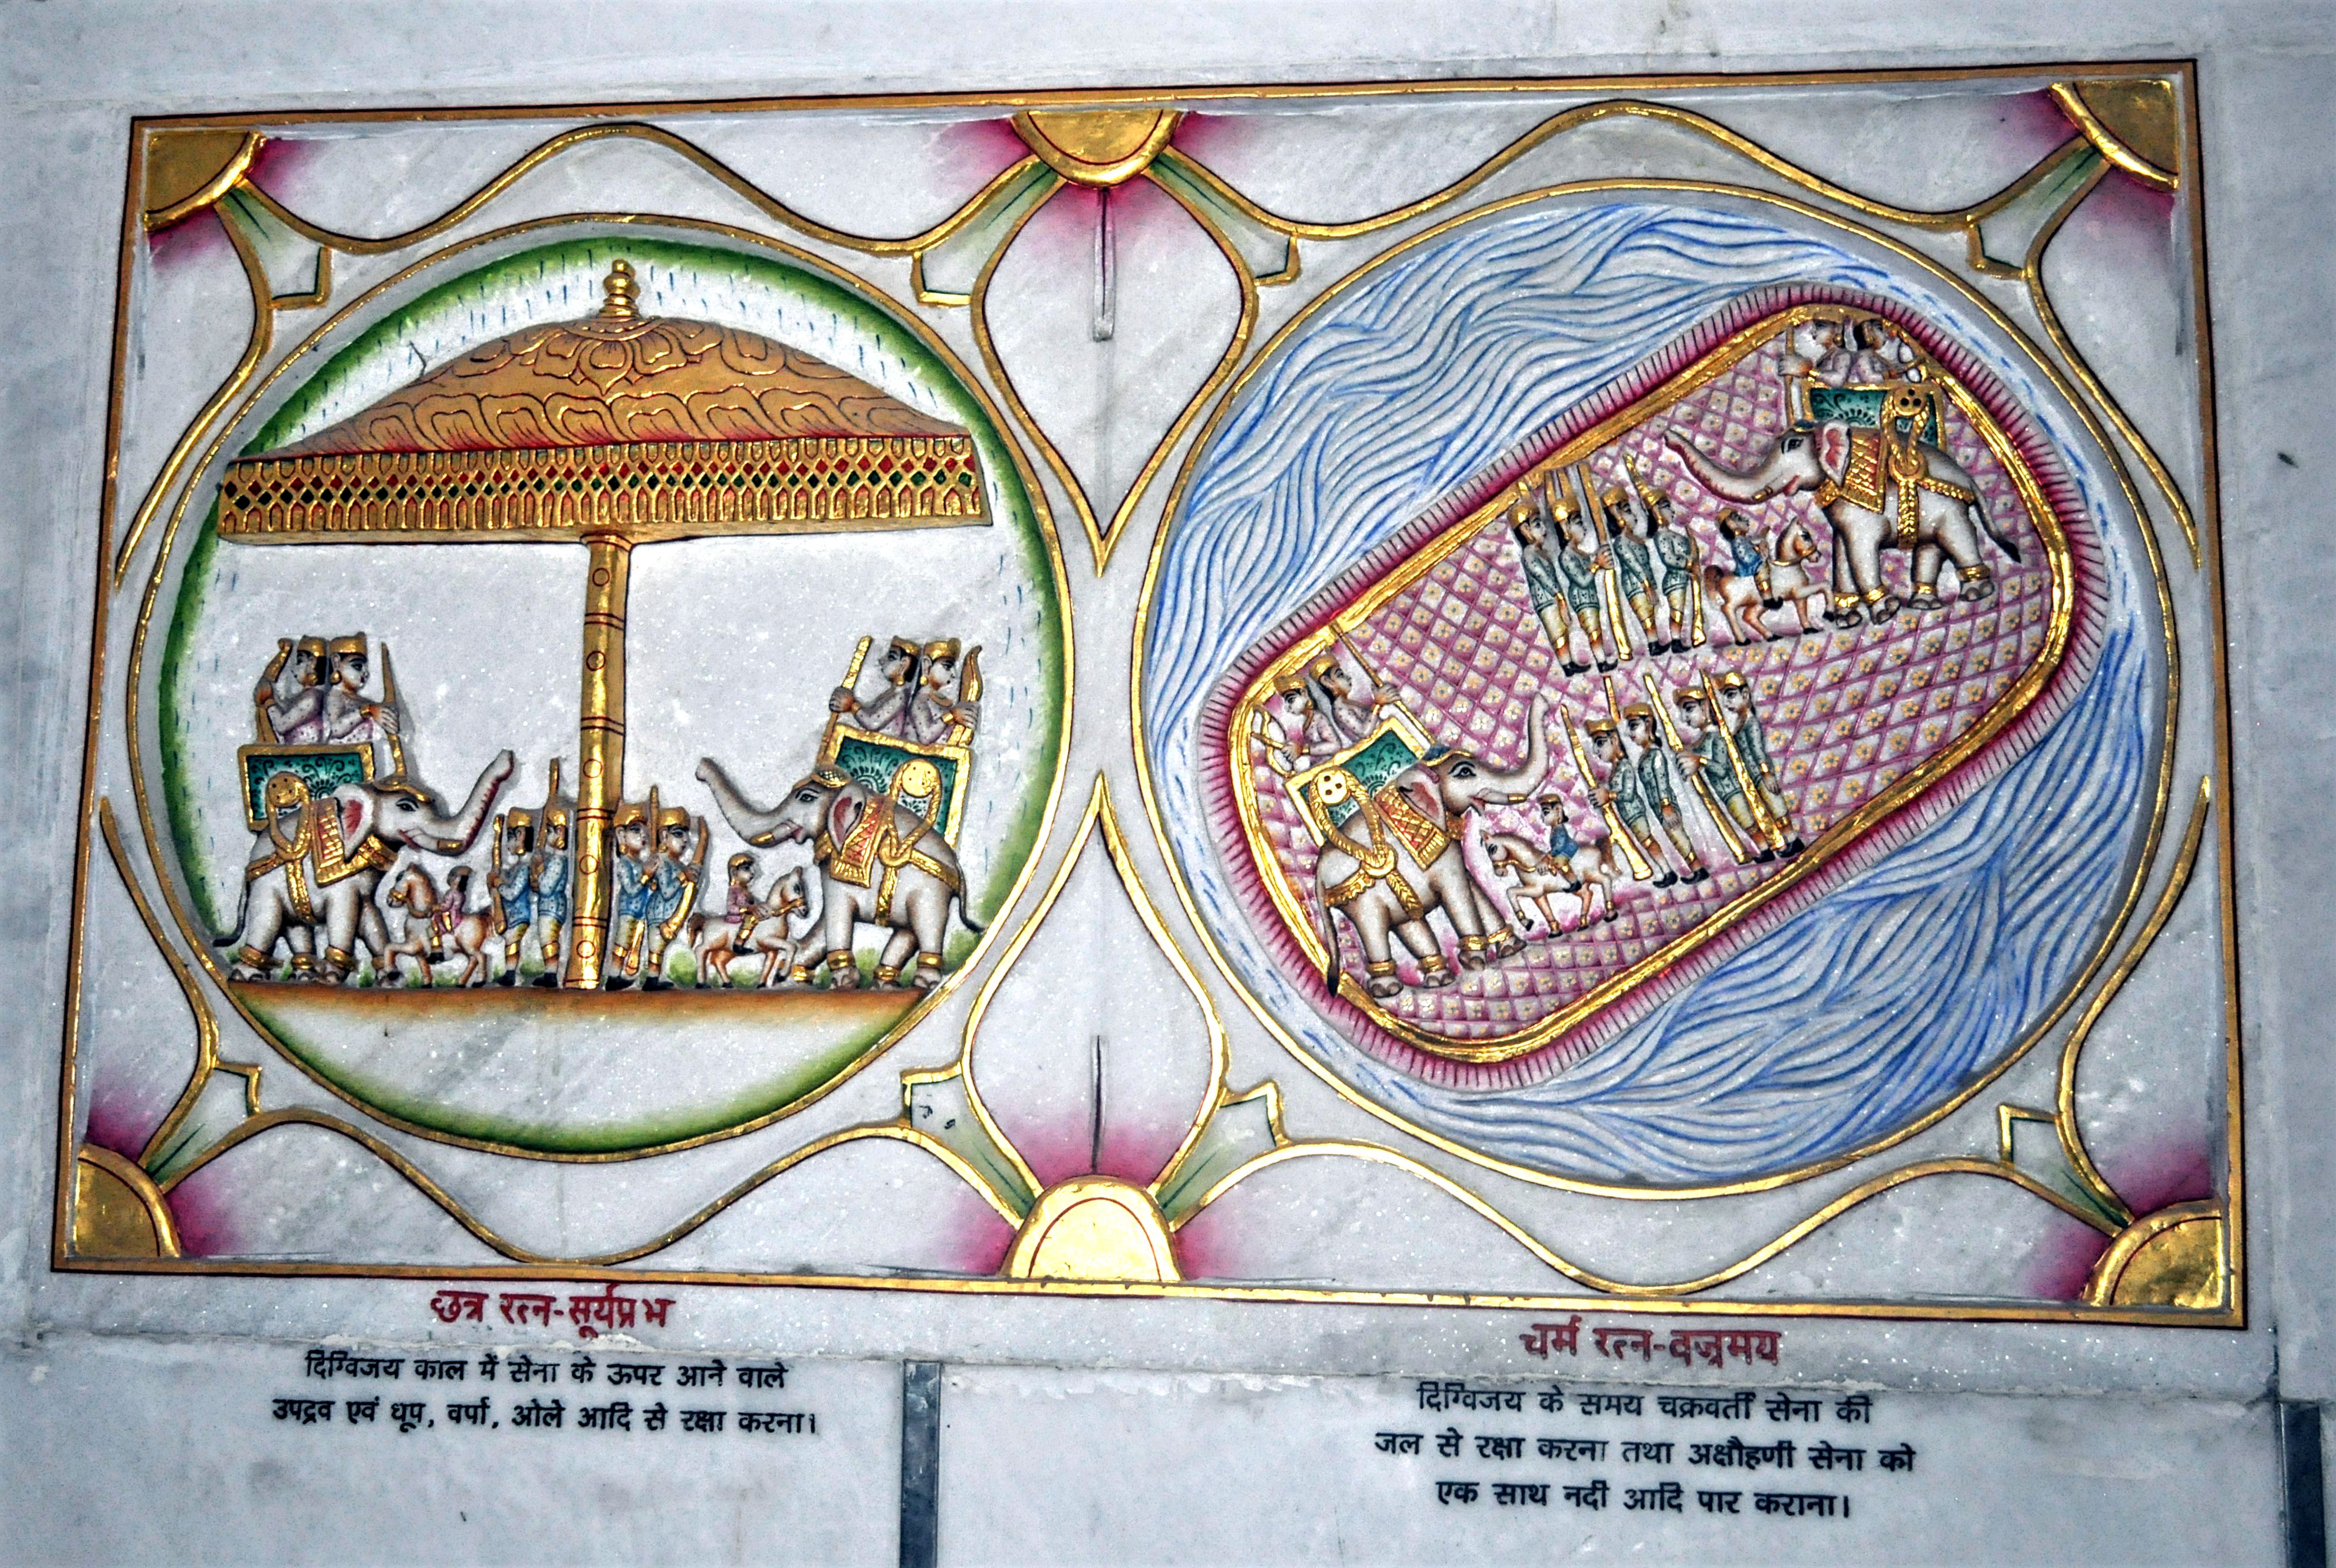 छत्र रत्न-सूर्यप्रभ
दिग्विजय काल में सेना के ऊपर आने वाले
उपद्रव एवं धूप, वर्षा, ओले आदि से रक्षा करना।
चर्म रत्न-वज्रमय
दिग्विजय के समय चक्रवर्ती सेना की
जल से रक्षा करना तथा अक्षौहणी सेना को
एक साथ नदी आदि पार कराना।